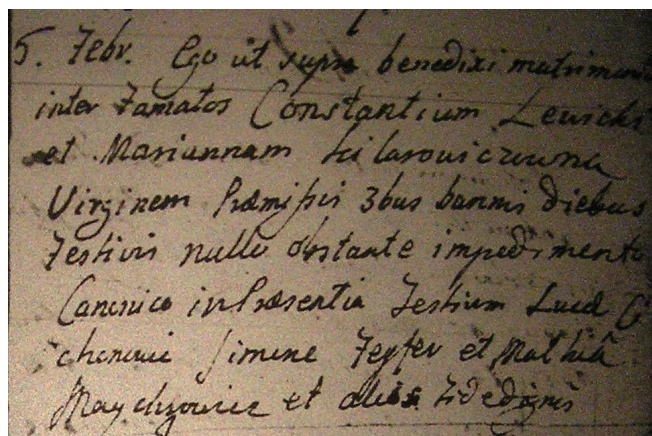 5. Febr. Ego ut supra benedixi matrimoni
inter Famatos Constantium Lewicki
et Mariannam Hilarowiczowna
Virginem Præmissis 3bus bannis diebus
Festivis nullo obstante impedimento
Canonico in Præsentia Testium Luca
Simone et Mathia
et aliis Fidedignis